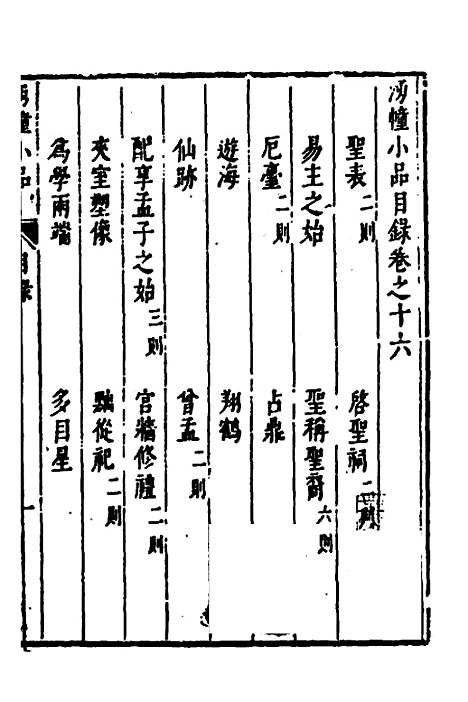 涌幢小品目録卷之十六
聖表二則 啓聖祠二則
易主之始 聖稱聖裔六則
厄臺二則 占鼎
遊海 翔鶴
仙跡 曾孟二則
配享孟子之始三則 宮牆修禮二則
夾室塑像 黜從祀二則
爲學兩端 多目星
涌幢小品 目録 一